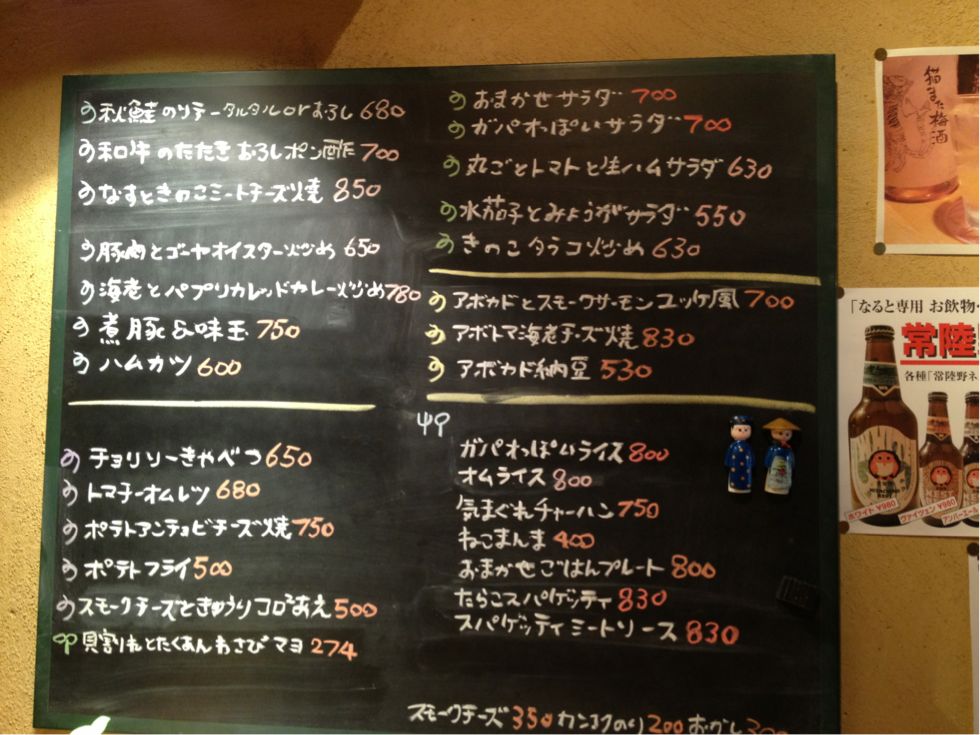 秋鮭のソテータルタルorおろし 680
和牛のたたき おろしポン酢 700
なすときのこミートチーズ焼 850
豚肉とゴーヤオイスター炒め 650
海老とパプリカレッドカレー炒め 780
煮豚&味玉 750
ハムカツ 600
チョリソーきゃべつ 650
トマチーオムレツ 680
ポテトアンチョビチーズ焼 750
ポテトフライ 500
スモークチーズときゅうりコロコロあえ 500
貝割れとたくあんわさびマヨ 274
おまかせサラダ 700
ガパオっぽいサラダ 700
丸ごとトマトと生ハムサラダ 630
水茄子とみょうがサラダ 550
きのこタラコ炒め 630
アボカドとスモークサーモンユッケ風 700
アボトマ海老チーズ焼 830
アボカド納豆 530
ガパオっぽいライス 800
オムライス 800
気まぐれチャーハン 750
ねこまんま 400
おまかせごはんプレート 800
たらこスパゲッティ 830
スパゲッティミートソース 830
スモークチーズ 350 カンヌクのり 200 おかし 300
猫また梅酒
「なると専用 お飲物
常陸
各種「常陸野ネ
ホワイト ¥980
ヴァイツェン ¥990
アンバーエ